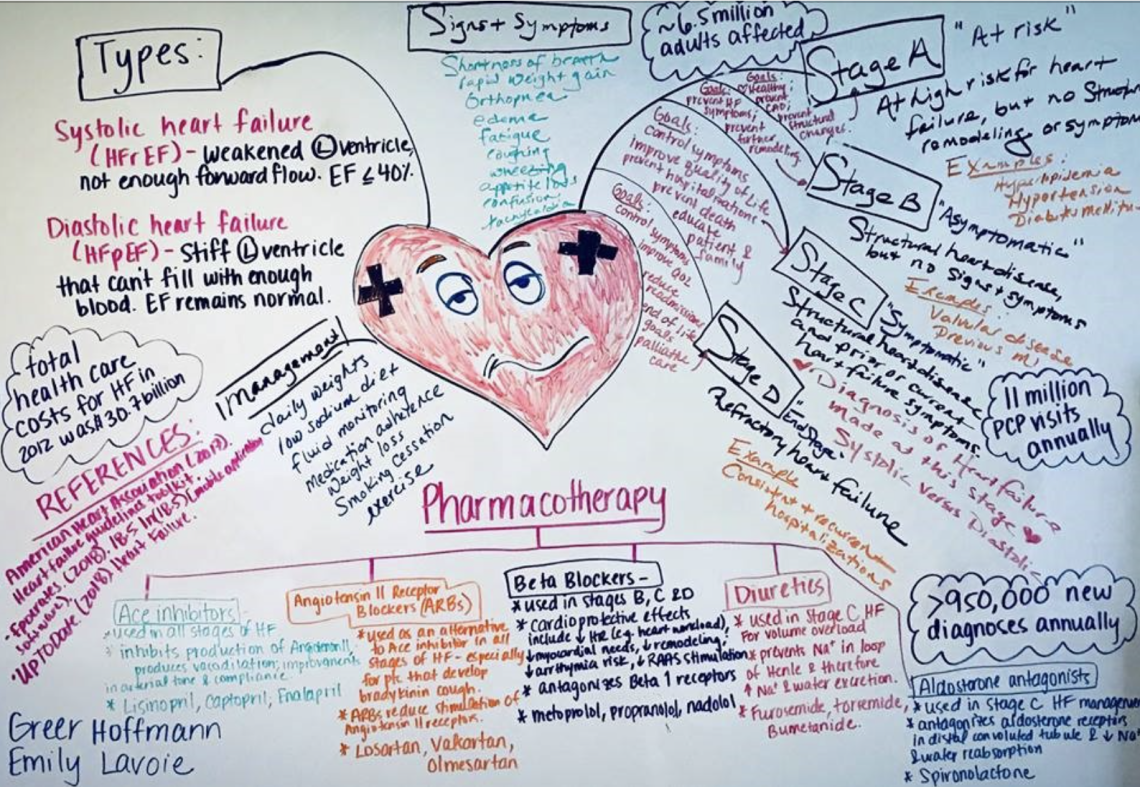 Types:
Systolic heart failure
(HFrEF) - weakened Ⓛ ventricle,
not enough forward flow. EF ≤40%.
Diastolic heart failure
(HFpEF) - Stiff Ⓛ ventricle
that can't fill with enough
blood. EF remains normal.
Signs + Symptoms
Shortness of breath
rapid weight gain
Orthopnea
edema
fatigue
coughing
wheezing
appetite loss
confusion
tachycardia
~6.5 million
adults affected
Stage A
"At risk"
At high risk for heart
failure, but no Structural
remodeling or symptoms
Examples:
Hyperlipidemia
Hypertension
Diabetes mellitus
Goals:
♡ Healthy;
prevent
CAD;
prevent
structural
changes.
Stage B
"Asymptomatic"
Structural heart disease,
but no signs + symptoms
Examples:
Valvular disease
Previous MI
Goals:
prevent HF
symptoms;
prevent
further
remodeling.
Stage C
"Symptomatic"
Structural heart disease
and prior or current
heart failure symptoms
♥ Diagnosis of Heart failure
made at this stage ♥
Systolic versus Diastolic
Goals:
control symptoms
improve quality of Life
prevent hospitalizations
prevent death
educate
patient &
family
Stage D
"End Stage"
Refractory heart failure
Example
Consistent + recurrent
hospitalizations
Goals:
control symptoms
improve QOL
reduce
readmissions
end of life
goals
palliative
care
11 million
PCP visits
annually
>950,000 new
diagnoses annually
total
health care
costs for HF in
2012 was $30.7 billion
Management
daily weights
low sodium diet
fluid monitoring
Medication adherence
Weight loss
Smoking cessation
exercise
REFERENCES:
American Heart Association (2017).
Heart failure guidelines toolkit.
- Epocrates. (2018). 18.5
(mobile application
software).
UPTODATE. (2018). Heart Failure.
Pharmacotherapy
Ace inhibitors -
* used in all stages of HF
* inhibits production of Angiotensin II,
produces vasodilation; improvements
in arterial tone & compliance.
* Lisinopril, Captopril, Enalapril
Angiotensin II Receptor
Blockers (ARBs)
* used as an alternative
to Ace inhibitor in all
stages of HF - especially
for pts that develop
bradykinin cough.
* ARBs reduce stimulation of
Angiotensin II receptors.
* Losartan, Valsartan,
Olmesartan
Beta Blockers -
* used in stages B, C & D
* cardioprotective effects
include ↓ HR (e.g. heart workload),
↓ myocardial needs, ↓ remodeling,
↓ arrhythmia risk, ↓ RAAS stimulation
* antagonizes Beta 1 receptors
* metoprolol, propranolol, nadolol
Diuretics
* used in Stage C HF
For volume overload
* prevents Na⁺ in loop
of Henle & therefore
↑ Na⁺ & water excretion.
* Furosemide, torsemide,
Bumetanide.
Aldosterone antagonists
* used in stage C HF management
* antagonizes aldosterone receptors
in distal convoluted tubule & ↓ Na⁺
& water reabsorption
* Spironolactone
Greer Hoffmann
Emily Lavoie